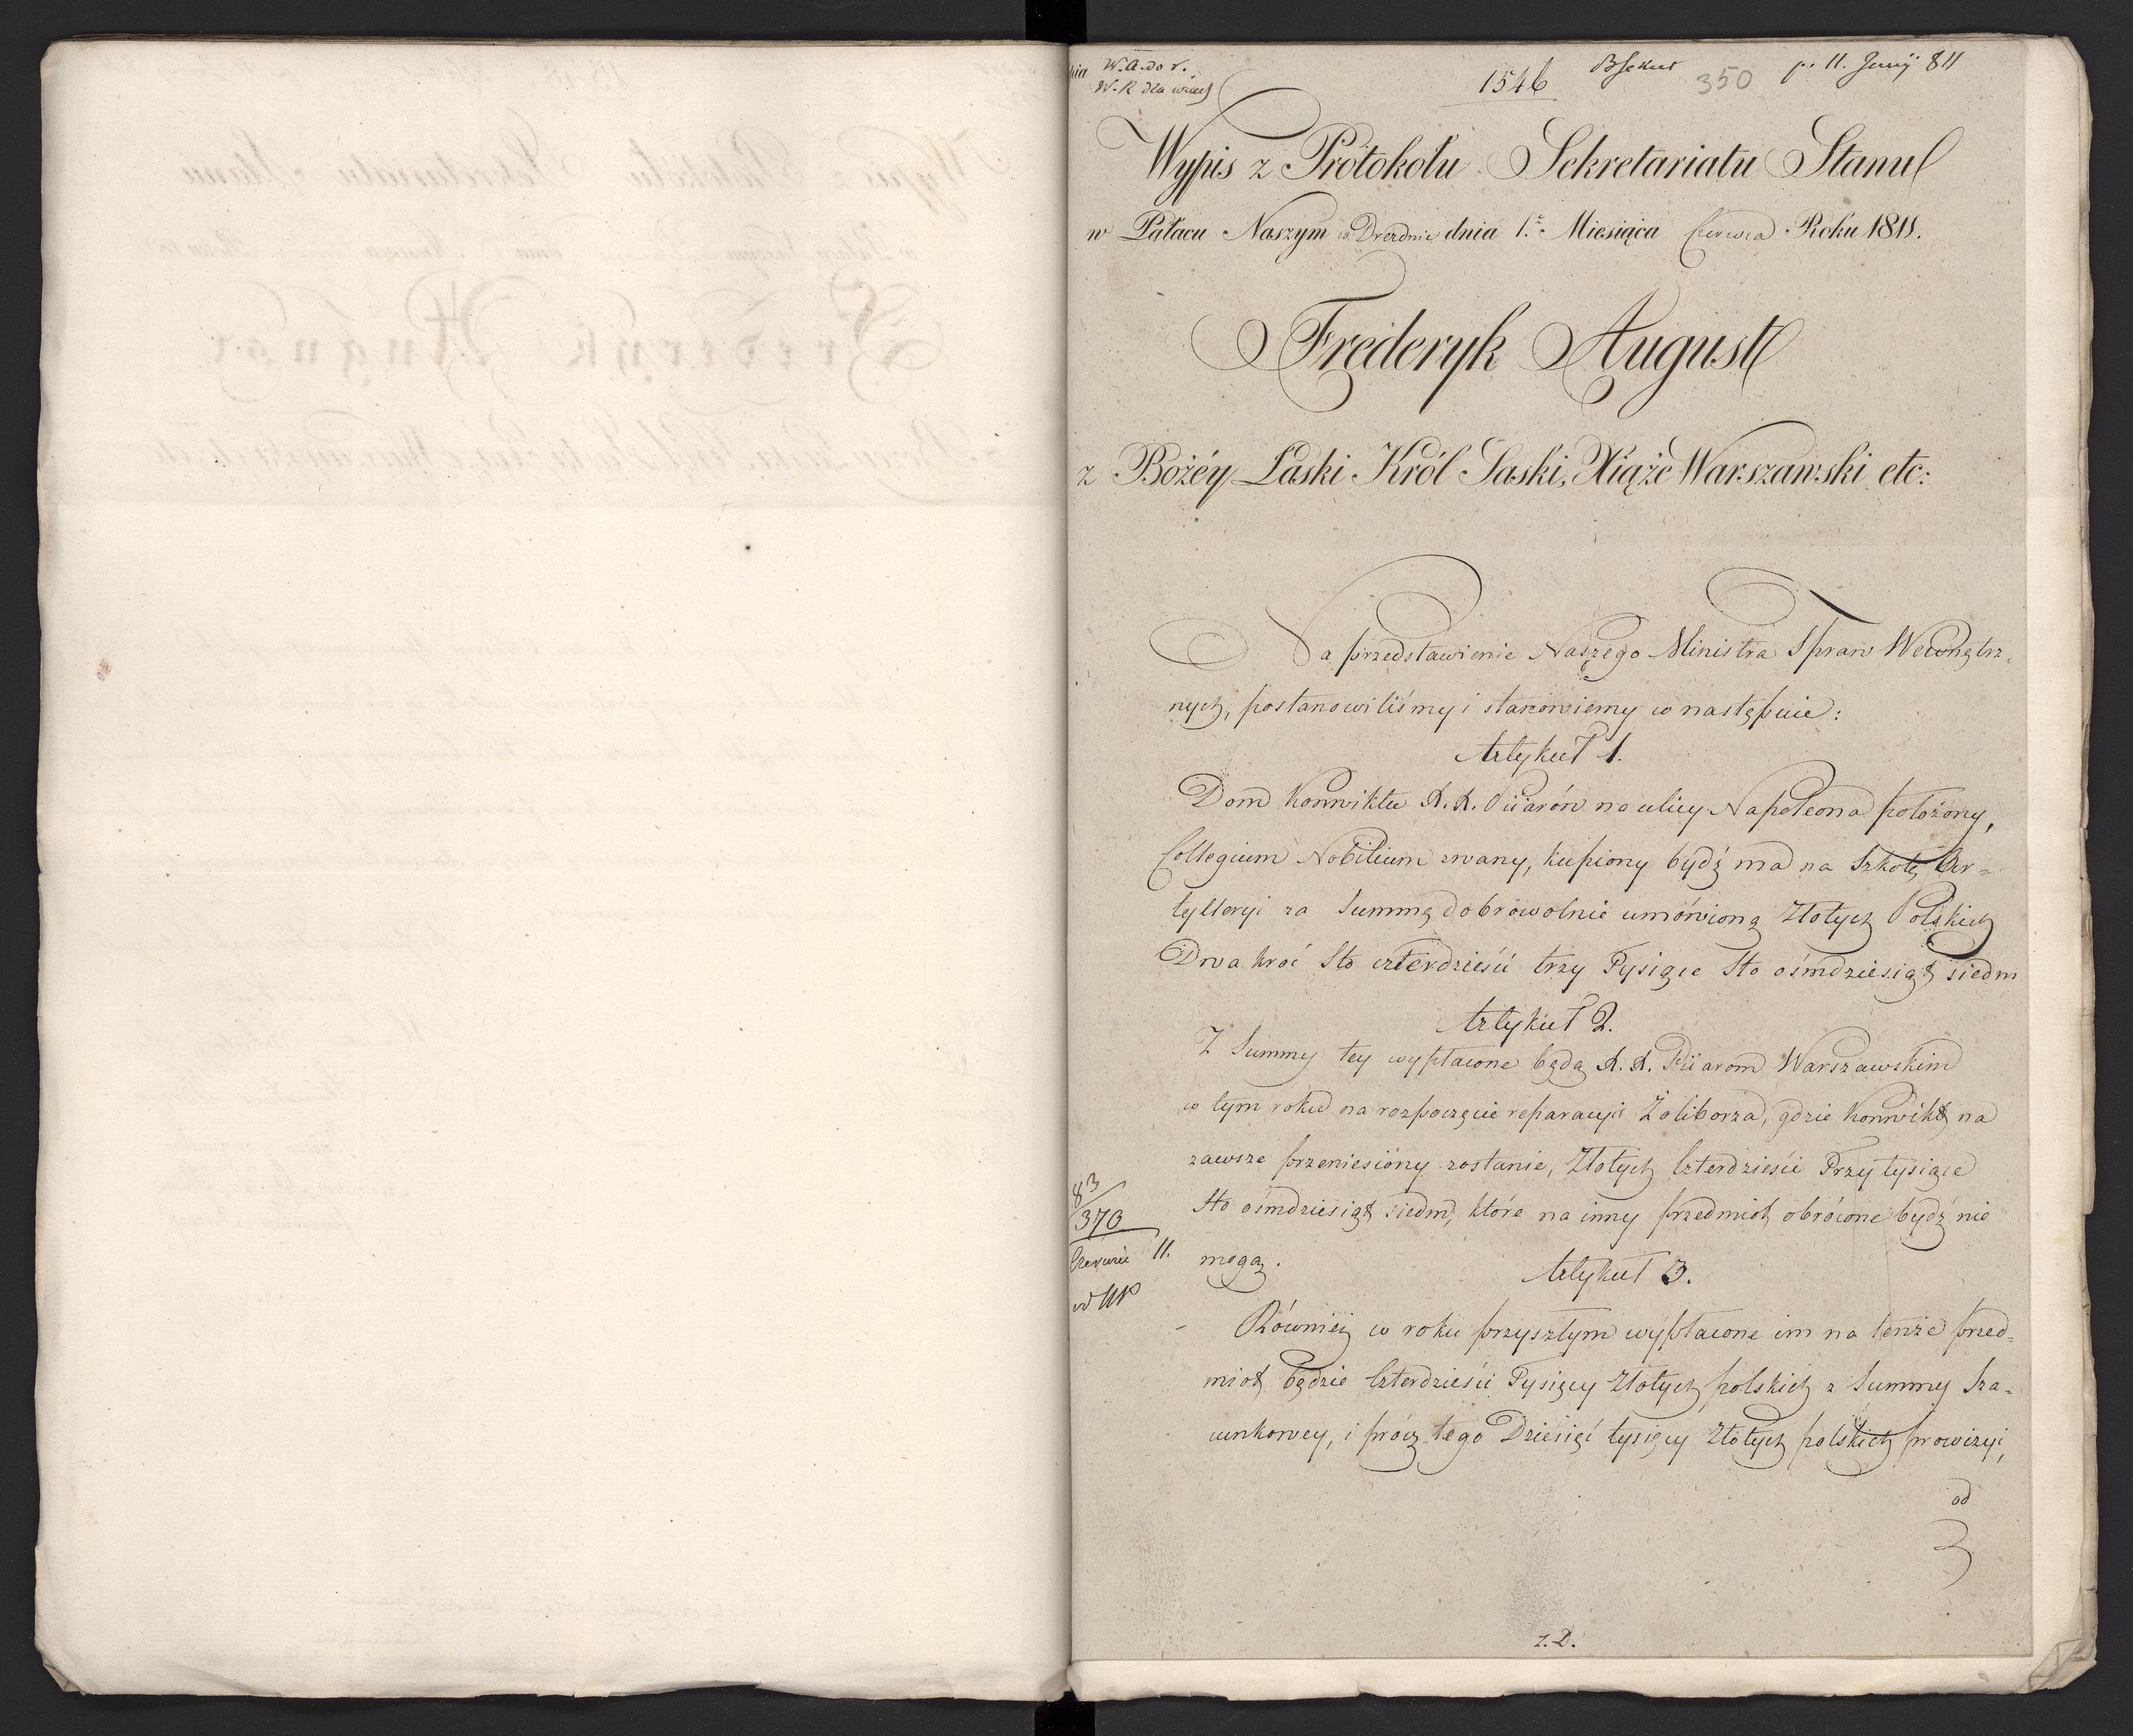 W. A. do r.
W. R. dla wiad
1546
350
p. 11. Junÿ 811
Wypis z Protokołu Sekretariatu Stanu
w Pałacu Naszym w Dreźnie dnia 1. Miesiąca Czerwca Roku 1811.
Frederyk August
z Bożéy Łaski Król Saski, Xiąże Warszawski etc:
Na przedstawienie Naszego Ministra Spraw Wewnętrz=
nych, postanowiliśmy i stanowiemy co następuie:
Artykuł 1.
Dom Konwiktu X. X. Piiarów na ulicy Napoleona położony,
Collegium Nobilium zwany, kupiony bydź ma na Szkołę Ar=
tylleryi za Summę dobrowolnie umówioną Złotych Polskich
Dwa kroć Sto czterdzieści trzy Tysiące Sto ośmdziesiąt siedm
Artykuł 2.
Z Summy tey wypłacone będą X. X. Piiarom Warszawskim
w tym roku na rozpoczęcie reparacyi Żoliborza, gdzie Konwikt na
zawsze przeniesiony zostanie, Złotych Czterdzieści Trzy tysiące
Sto ośmdziesiąt siedm, które na inny przedmiot obrócone bydź nie
mogą.
Artykuł 3.
Równiez w roku przyszłym wypłacone im na tenże przed=
miot będzie Czterdzieści Tysięcy Złotych polskich z Summy Sza=
cunkowey, i prócz tego Dziesięć tysięcy Złotych polskich prowizyi,
od
83
370
Czerwca 11.
z. D.